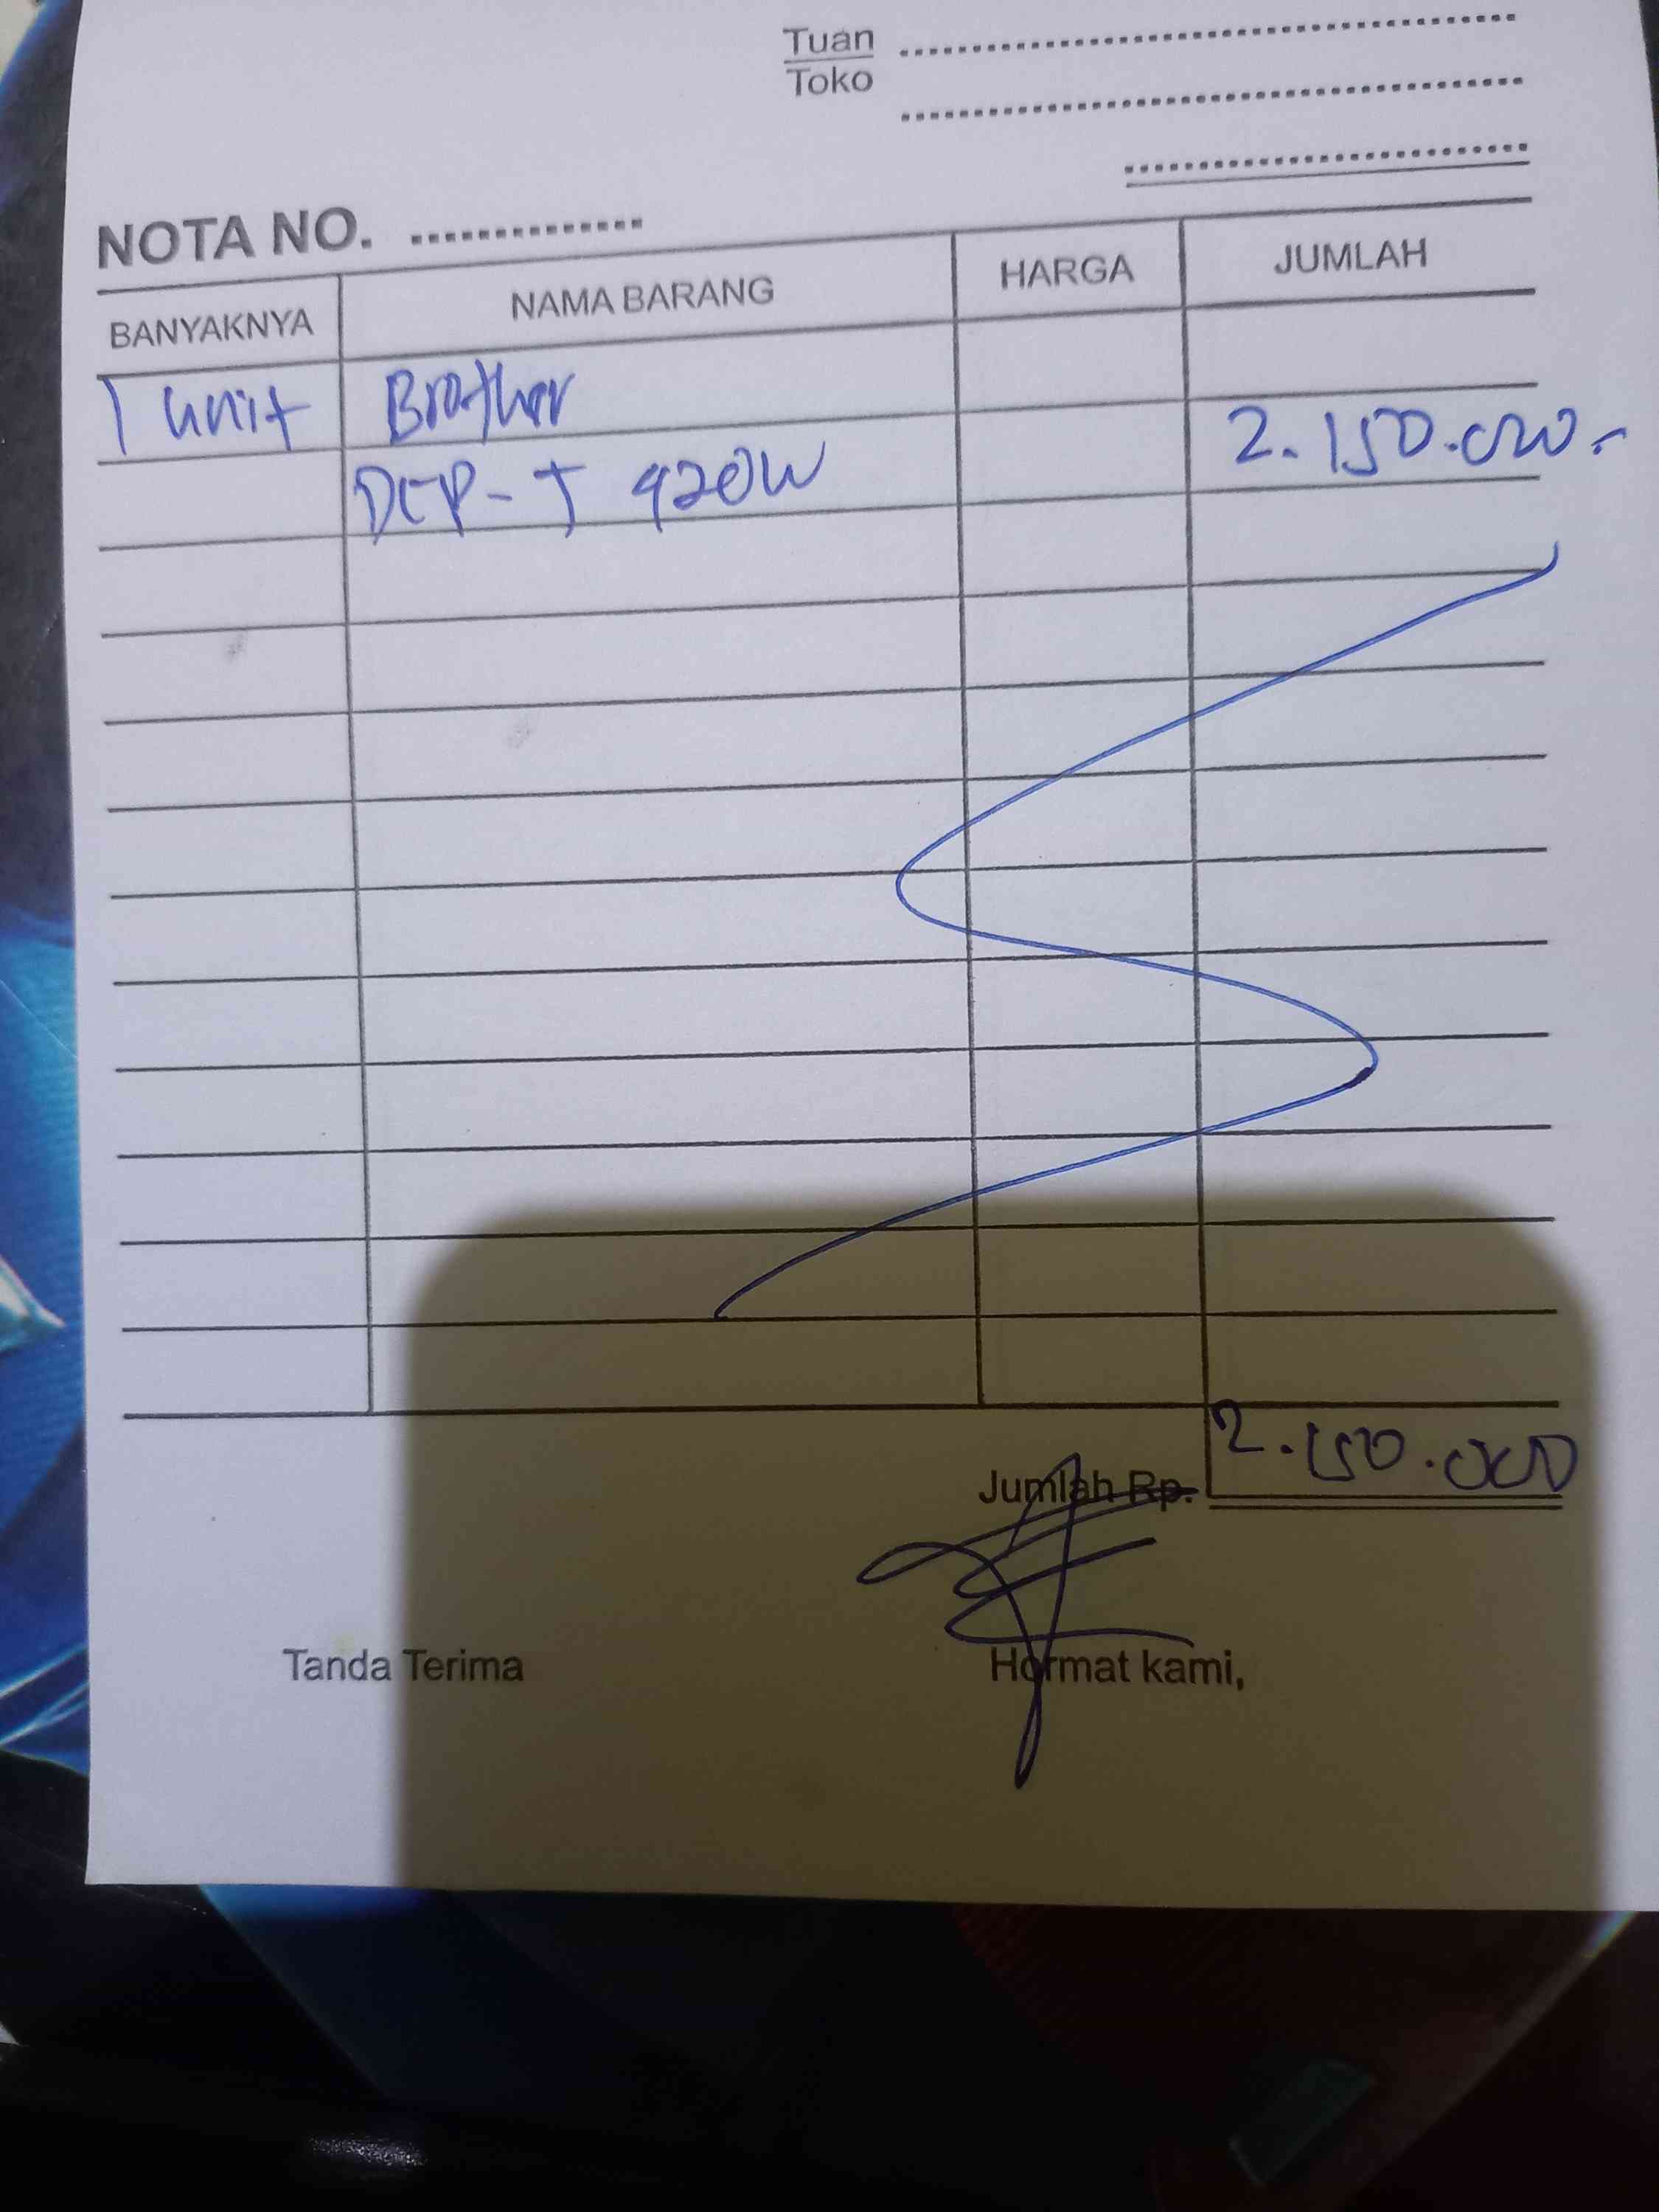 Tuan
Toko
NOTA NO. ..............
BANYAKNYA NAMA BARANG HARGA JUMLAH
1 unit Brother
DCP-T 420W 2.150.000.-
Jumlah Rp. 2.150.000
Tanda Terima Hormat kami,